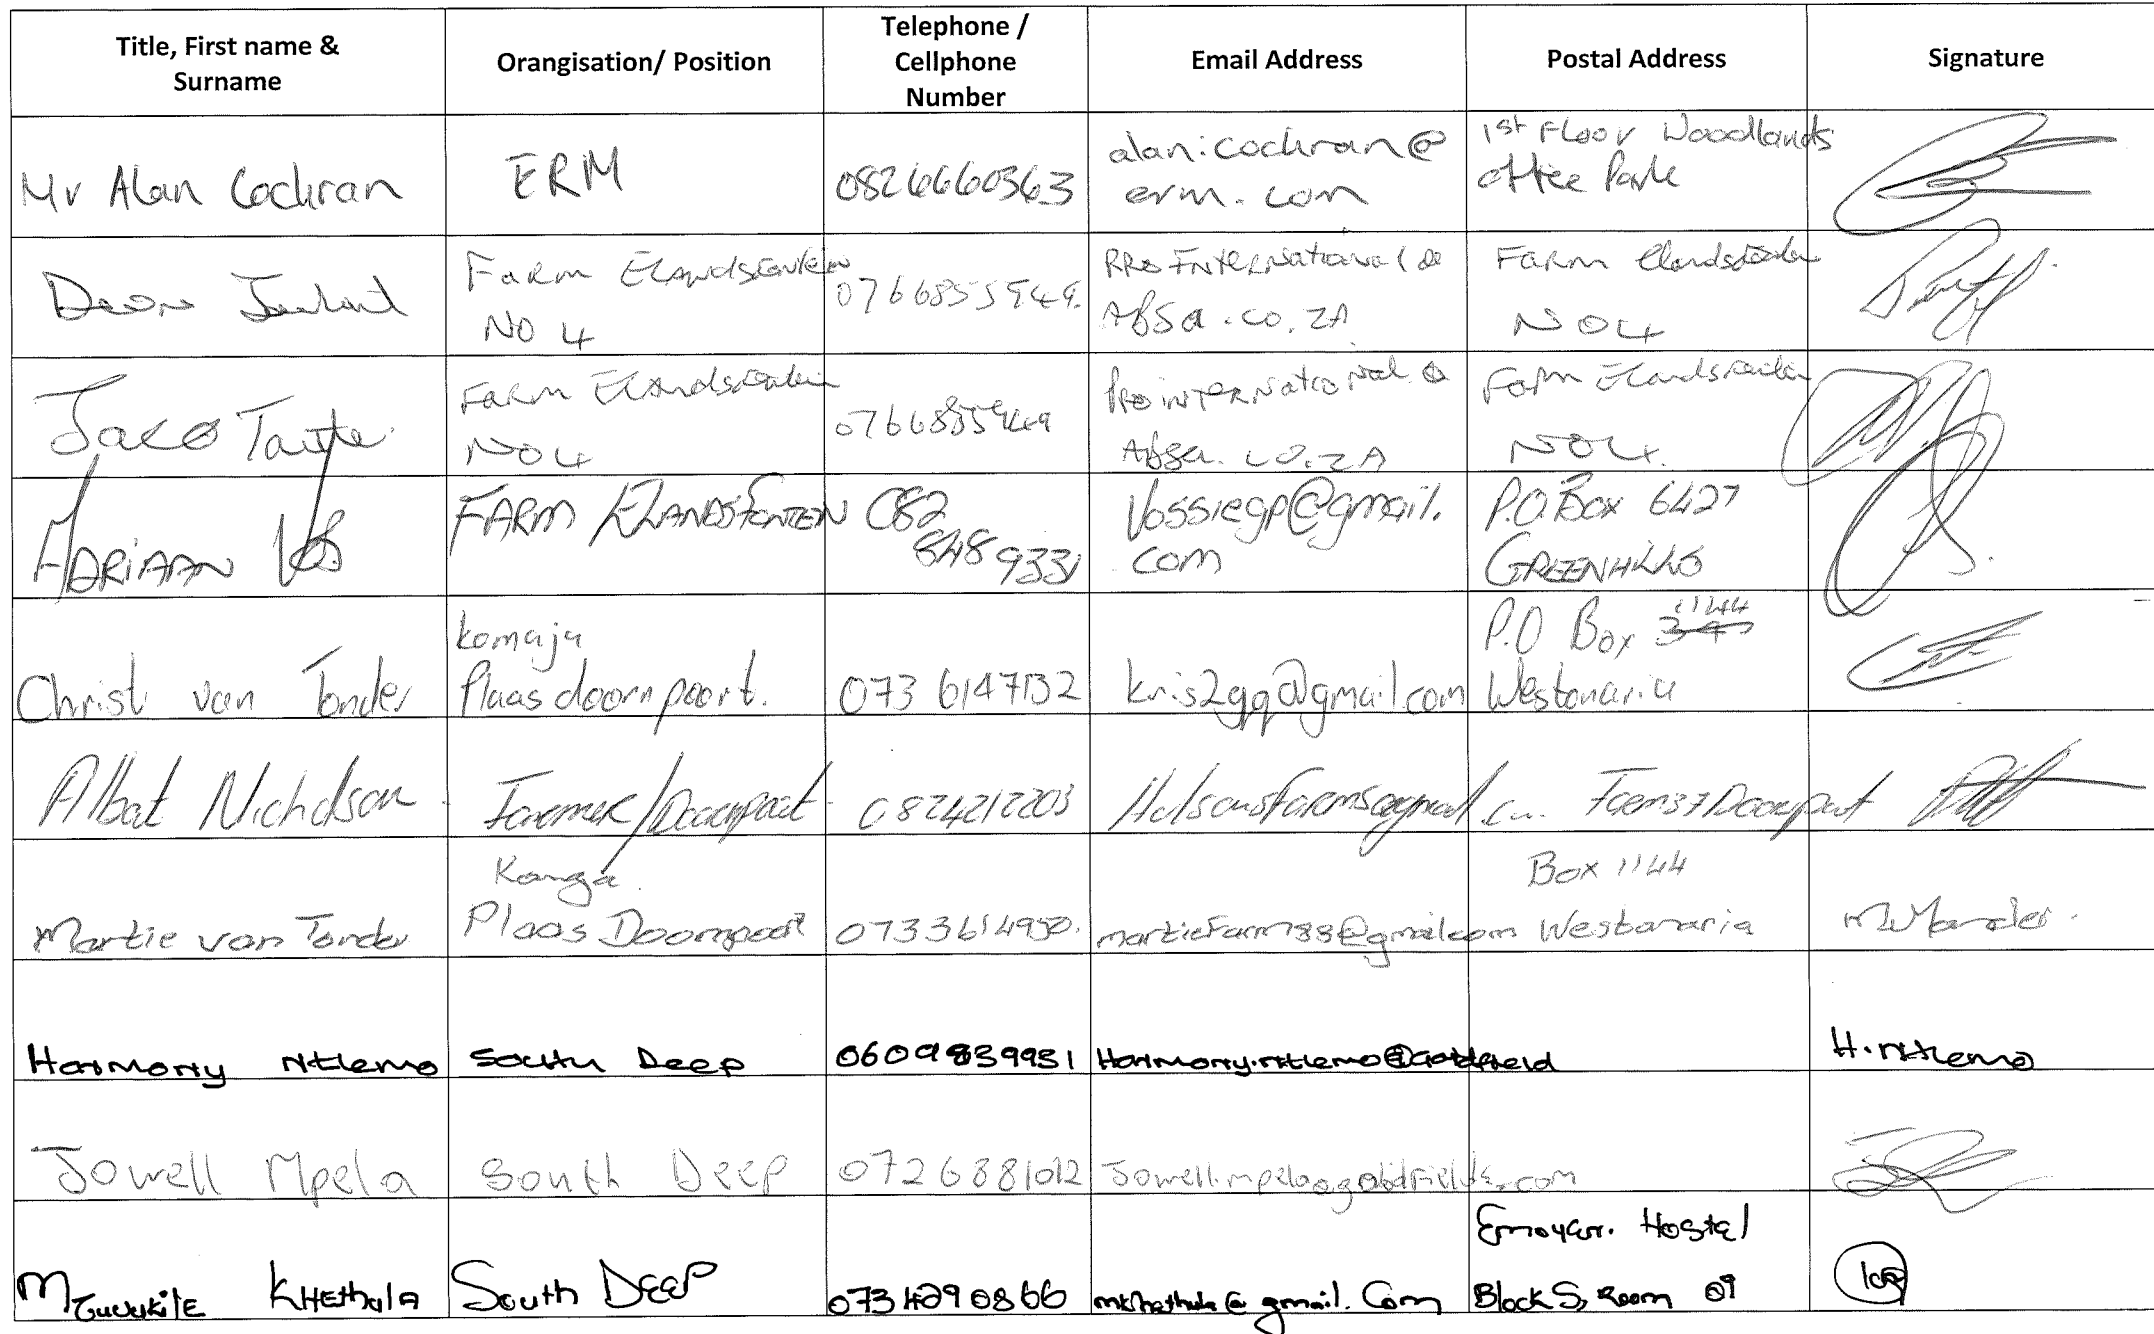 Title, First name &
Surname
Orangisation/ Position
Telephone /
Cellphone
Number
Email Address
Postal Address
Signature
Mr Alan Cochran
ERM
0826660363
alan.cochran@
erm.com
1st Floor Woodlands
office Park
Deon
Farm Elandsfontein
NO 4
0766855949.
PRO International @
Absa.co.ZA
Farm Elandsfontein
NO 4
Jaco Taute
Farm Elandsfontein
NO 4
0766855949
Pro international @
Absa.co.ZA
Farm Elandsfontein
NO 4.
ADRIAAN VOS
FARM ELANDSFONTEIN
082
848 9331
vossiegp@gmail.
com
P.O. Box 6427
GREENHILLS
Christ van Tonder
komaja
Plaas doornpoort.
073 6147132
kris2gq@gmail.com
P.O Box 1144
Westonaria
Albat Nicholson
Farmer/Doornpoort
0824212203
Farm 37 Doornpoort
Martie van Tonder
Plaas Doornpoort
0733614950.
martiefarm33@gmail.com
Box 1144
Westonaria
Harmony Ntlemo
South Deep
0609839931
Harmony.ntlemo@Goldfield
H.ntlemo
Jowell Mpela
South Deep
0726881012
Jowell.mpela@goldfields.com
KHethula
South DEEP
0734290866
mkhethula@gmail.com
Hostel
Block S, Room 09